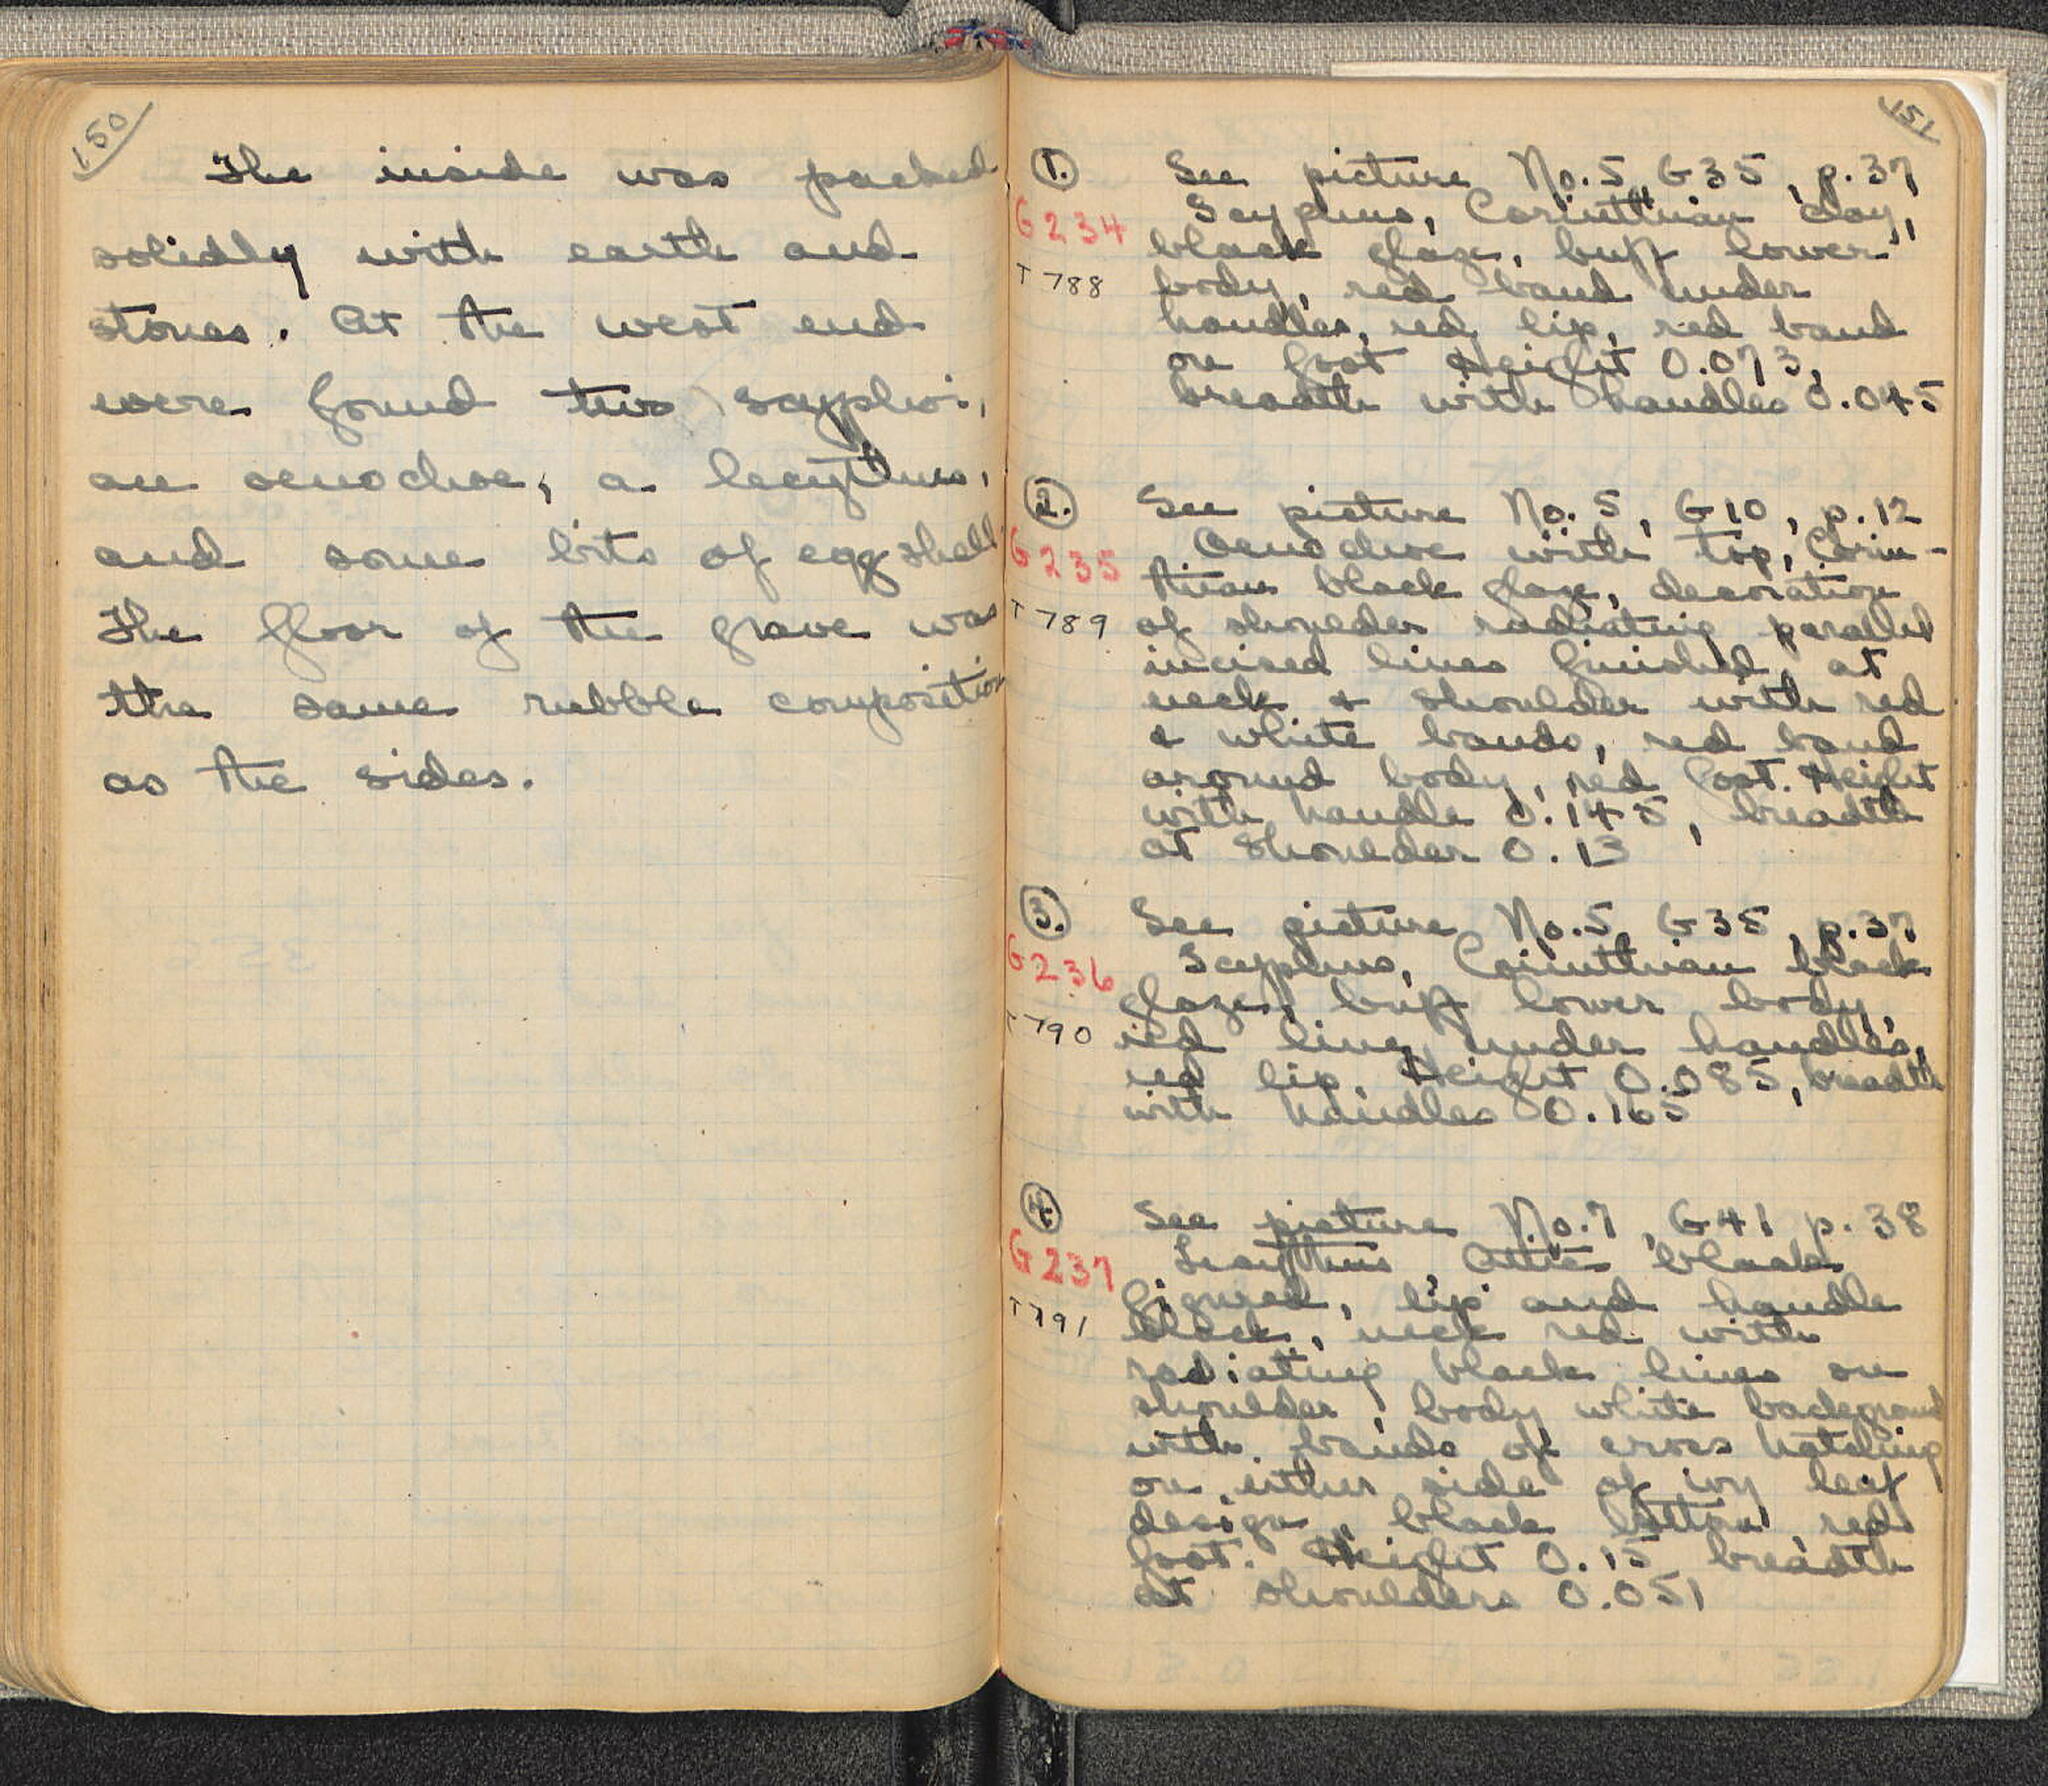 150
The inside was packed
solidly with earth and
stones. At the west end
were found two scyphoi,
an oenochoe, a lecythus,
and some bits of egg shell
The floor of the grave was
the same rubble composition
as the sides.
151
1. See picture No. 5, G35, p. 37
G 234 Scyphus, Corinthian clay,
black glaze, buff lower
T 788 body, red band under
handles, red lip, red band
on foot Height 0.073,
breadth with handles 0.045
2. See picture No. 5, G10, p. 12
G 235 Oenochoe with top, Corin-
thian black glaze, decoration
T 789 of shoulder radiating parallel
incised lines finished at
neck & shoulder with red
& white bands, red band
around body, red foot. Height
with handle 0.145, breadth
at shoulder 0.13
3. See picture No. 5, G35, p. 37
G 236 Scyphus, Corinthian black
glaze, buff lower body,
T 790 red line under handles,
red lip. Height 0.085, breadth
with handles 0.165
4. See picture No. 7, G41 p. 38
G 237 Lecythus, Attic black
figured, lip and handle
T 791 black, neck red with
radiating black lines on
shoulder, body white background
with bands of cross hatching
on either side of ivy leaf
design, black bottom, red
foot. Height 0.15 breadth
at shoulders 0.051